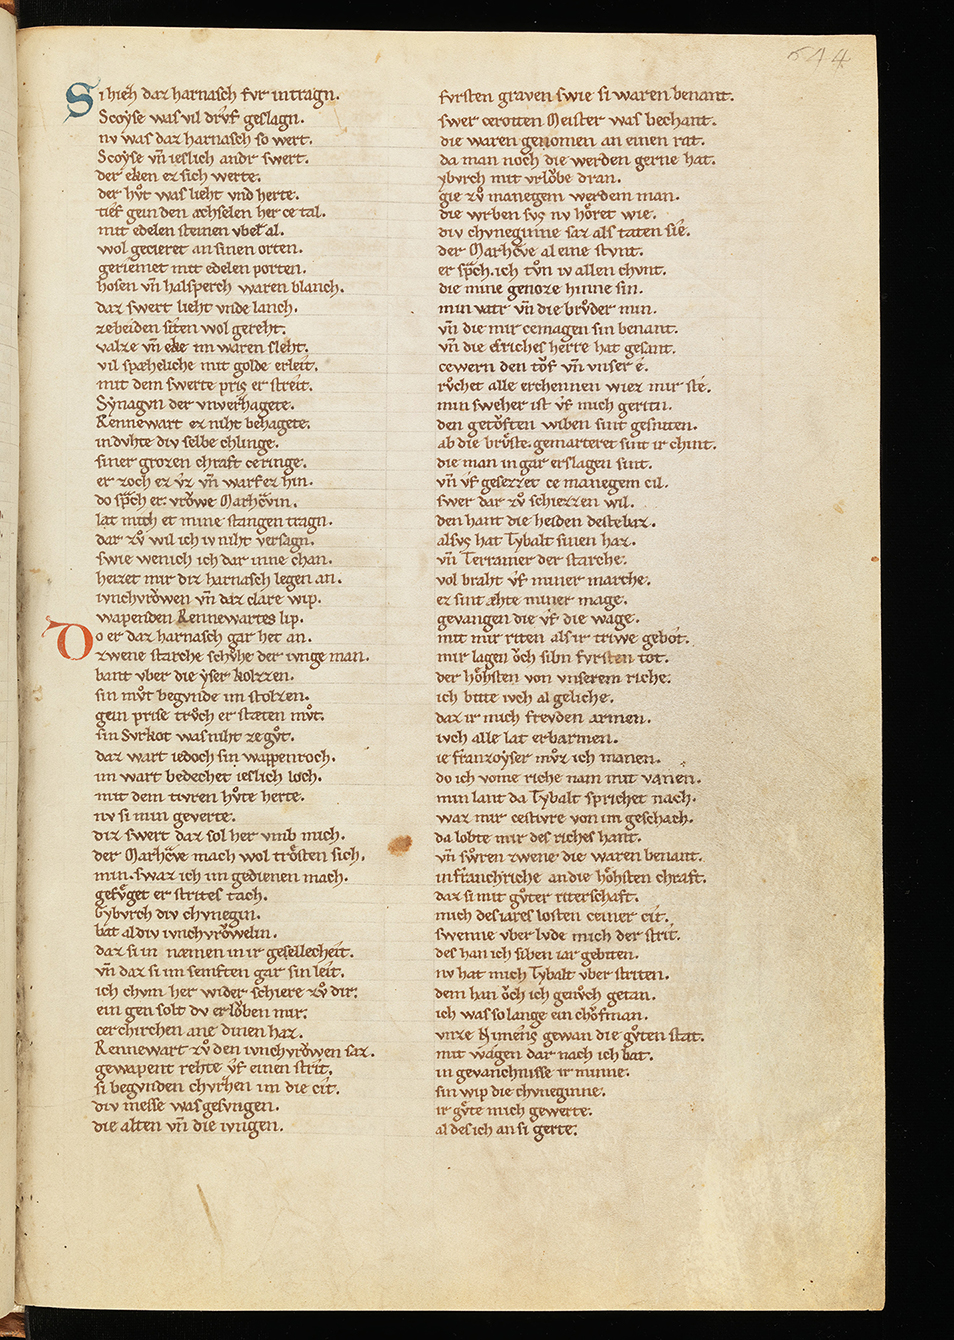 644
Si hieh daz harnasch fvr in tragn.
Scoyse was vil drvf geslagn.
nv was daz harnasch so wert.
Scoyse vn̄ ieslich andr swert.
der eken er sich werte.
der hv̊t was lieht vnd herte.
tief gein den achselen her ce tal.
mit edelen steinen vberal.
wol gecieret an sinen orten.
geriemet mit edelen porten.
hosen vn̄ halsperch waren blanch.
daz swert lieht vnde lanch.
zebeiden siten wol gereht.
valze vn̄ eke im waren sleht.
vil spæheliche mit golde erleit.
mit dem swerte pris er streit.
Synagvn der vnverhagete.
Rennewart ez niht behagete.
in dvhte div selbe chlinge.
siner grozen chraft ce ringe.
er zoch ez v̂z vn̄ warf ez hin.
do sp̄ch er. vrowe Marhc̄vin.
lat mich et mine stangen tragn.
dar zv̊ wil ich iv niht versagn.
swie wenich ich dar inne chan.
heizet mir diz harnasch legen an.
ivnchvrowen vn̄ daz clare wip.
wapenden Rennewartes lip.
Do er daz harnasch gar het an.
zwene starche schv̊he der ivnge man.
bant vber die yser kolzzen.
sin mv̊t begvnde im stolzen.
gein prise trv̊ch er stæten mv̊t.
sin Svrkot was niht ze gv̊t.
daz wart iedoch sin wappenroch.
im wart bedechet ieslich loch.
mit dem tivren hv̊te herte.
nv si min geverte.
diz swert daz sol her vmb mich.
der Marhc̄ve mach wol trosten sich.
min. swaz ich im gedienen mach.
gefv̊get er strites tach.
Gybvrch div chvnegin.
bat al div ivnchvrowelin.
daz si in næmen in ir gesellecheit.
vn̄ daz si im senften gar sin leit.
ich chvm her wider schiere zv̊ dir.
ein gen solt dv erlovben mir.
cer chirchen ane dinen haz.
Rennewart zv̊ den ivnchvrowen saz.
gewapent rehte v̂f einen strit.
si begvnden chvrhen im die cit.
div messe was gesvngen.
die alten vn̄ die ivngen.
fvrsten graven swie si waren benant.
swer cerotten Meister was bechant.
die waren genomen an einen rat.
da man noch die werden gerne hat.
ybvrch mit vrlovbe dran.
gie zv̊ manegem werdem man.
die wrben svs nv horet wie.
div chvneginne saz als taten sie.
der Marhc̄ve al eine stvnt.
er sp̄ch. ich tv̊n iv allen chvnt.
die mine genoze hinne sin.
min vatr vn̄ die brv̊der min.
vn̄ die mir cemagen sin benant.
vn̄ die des riches herre hat gesant.
cewern den tovf vn̄ vnser e.
rv̊chet alle erchennen wiez mir ste.
min sweher ist v̂f mich geritn.
den getovften wiben sint gesniten.
ab die brv̊ste. gemarteret sint ir chint.
die man in gar erslagen sint.
vn̄ v̂f gesezzet ce manegem cil.
swer dar zv̊ schiezzen wil.
den hant die heiden destebaz.
alsvs hat Tybalt sinen haz.
vn̄ Terramer der starche.
vol braht v̂f miner marche.
ez sint æhte miner mage.
gevangen die v̂f die wage.
mit mir riten als ir triwe gebot.
mir lagen och sibn fvrsten tot.
der hohsten von vnserem riche.
ich bitte ivch al geliche.
daz ir mich frevden armen.
ivch alle lat erbarmen.
ie franzoyser mv̊z ich manen.
do ich vome riche nam mit vanen.
min lant da Tybalt sprichet nach.
waz mir cestivre von im geschach.
da lobte mir des riches hant.
vn̄ swv̊ren zwene. die waren benant.
in franchriche an die hohsten chraft.
daz si mit gv̊ter riterschaft.
mich des iares losten ceiner cit.
swenne vber lvde mich der strit.
des han ich siben iar gebiten.
nv hat mich Tybalt vber striten.
dem han och ich genv̊ch getan.
ich was so lange ein chovfman.
vnze Nimeis gewan die gv̊ten stat.
mit wagen dar nach ich bat.
in gevanchnisse ir minne.
sin wip die chvneginne.
ir gv̊te mich gewerte.
al des ich an si gerte.